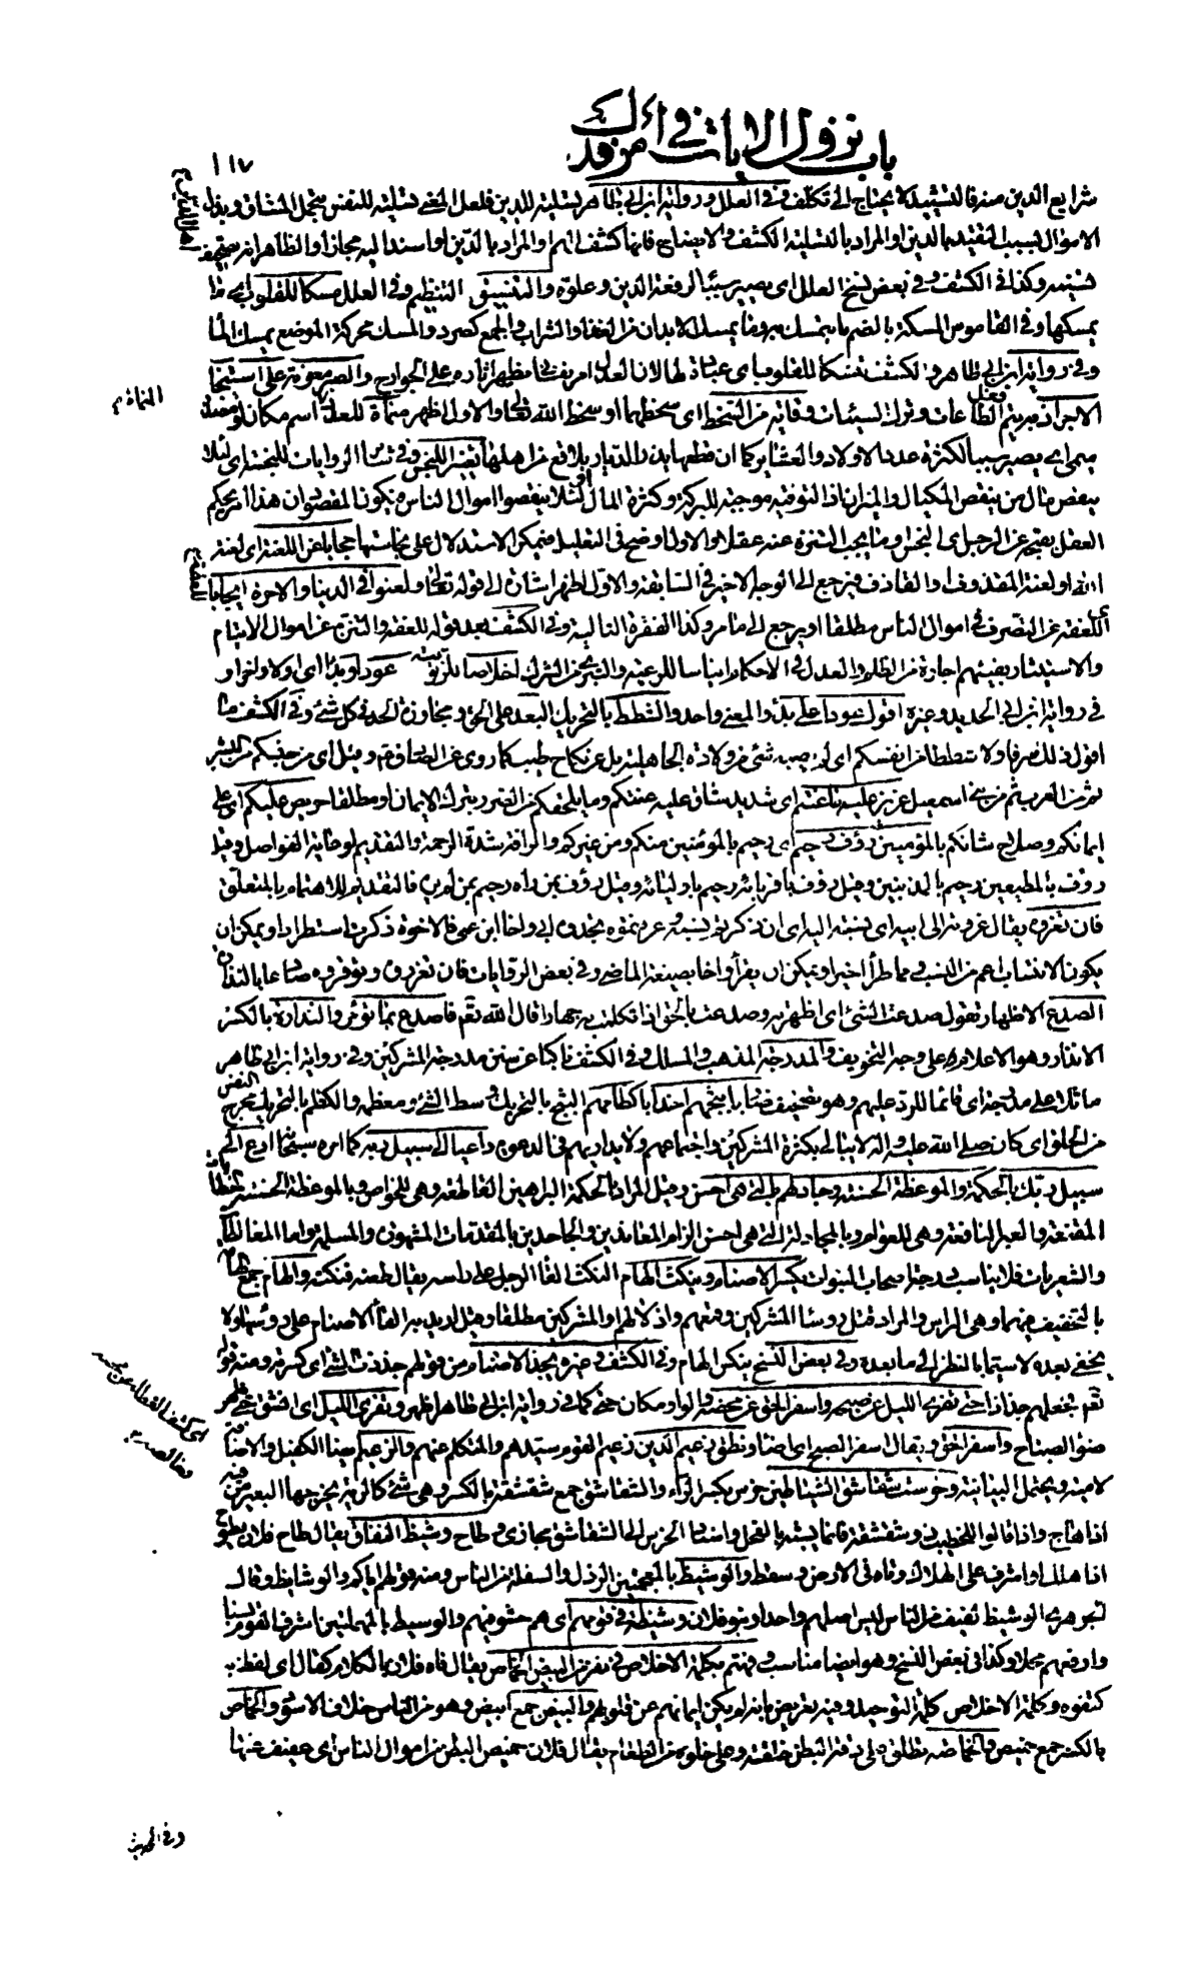 باب نزول الايات في امر فدك
١١٧
شرايع الدين منه فالتشييد لا يحتاج الى تكلف وفي العلل ورواية ابن ابي طاهر تسلية للدين فلعل المعنى تسلية للنفس بتحمل المشاق وبذل
الاموال بسبب التقيد بالدين او المراد بالتسلية الكشف والايضاح فانها كشف الهم او المراد بالدين او اسناد اليه مجاز والظاهر انه تصحيف
تسنية وكذا في الكشف وفي بعض نسخ العلل اى يصير سببا لرفعة الدين وعلوه والتنسيق التنظيم وفي العلل مسكا للقلوب اى ما
يمسكها وفي القاموس المسكة بالضم ما يتمسك به وما يمسك الابدان من الغذاء والشراب والجمع كصرد والمسك محركة الموضع يمسك الماء
وفي رواية ابن ابي طاهر والكشف تنسكا للقلوب اى عبادة لها لان العدل امر نفساني يظهر اثاره على الجوارح والصبر معونة على استيجاب
الاجر اذ به يتم فعل الطاعات وترك السيئات وقاية من السخط اى سخطهما او سخط الله تعالى والاول اظهر منماة للعدد اسم مكان او مصدر
ميمى اى يصير سببا لكثرة عدد الاولاد والعشاير كما ان قطعها يذر الديار بلاقع من اهلها تغيير للبخس وفي سائر الروايات للبخسة اى لئلا
ينقص مال من ينقص المكيال والميزان اذ التوفية موجبة للبركة وكثرة المال او لئلا ينقصوا اموال الناس فيكون المقصود ان هذا امر يحكم
العقل بقبحه عن الرجس اى النجس او ما يجب التنزه عنه عقلا والاول اوضح في التعليل فيمكن الاستدلال على نجاستها حجابا عن اللعنة اى لعنة
الله او لعنة المقذوف او القاذف فيرجع الى الوجه الاخير في السابقة والاول اظهر اشارة الى قوله تعالى لعنوا في الدنيا والاخرة ايجابا
للعفة عن التصرف في اموال الناس مطلقا او يرجع الى ما مر وكذا الفقرة التالية وفي الكشف بعد قوله للعفة والتنزه عن اموال الايتام
والاستيثار بفيئهم اجارة من الظلم والعدل في الاحكام ايناسا للرعية والتبري من الشرك اخلاصا للربوبية عودا وبدءا اى اولا واخرا و
في رواية ابن ابي الحديد وغيره اقول عودا على بدء والمعنى واحد والشطط بالتحريك البعد عن الحق ومجاوزة الحد في كل شئ وفي الكشف ما
اقول ذلك سرفا ولا شططا من انفسكم اى لم يصبه شئ من ولادة الجاهلية بل عن نكاح طيب كما روى عن الصادق ع وقيل اى من جنسكم من البشر
ثم من العرب ثم من بني اسمعيل عزيز عليه ما عنتم اى شديد شاق عليه عنتكم وما يلحقكم من الضرر بترك الايمان او مطلقا حريص عليكم اى على
ايمانكم وصلاح شانكم بالمؤمنين رؤف رحيم اى رحيم بالمؤمنين منكم ومن غيركم والرافة شدة الرحمة والتقديم لرعاية الفواصل وقيل
رؤف بالمطيعين رحيم بالمذنبين وقيل رؤف باقربائه رحيم باوليائه وقيل رؤف بمن راه رحيم بمن لم يره فالتقديم للاهتمام بالمتعلق
فان تعزوه يقال عزوته الى ابيه اى نسبته اليه اى ان ذكرتم نسبه وعرفتموه تجدوه ابي واخا ابن عمي فالاخوة ذكرت استطرادا ويمكن ان
يكون الانتساب اعم من النسب ومما طرأ اخيرا ويمكن ان يقرأ واخا بصيغة الماضي وفي بعض الروايات فان تعزروه وتوقروه صادعا بالنذارة
الصدع الاظهار تقول صدعت الشئ اى اظهرته وصدعت بالحق اذا تكلمت به جهارا قال الله تعم فاصدع بما تؤمر والنذارة بالكسر
الانذار وهو الاعلام على وجه التخويف والمدرجة المذهب والمسلك وفي الكشف ناكبا عن سنن مدرجة المشركين وفي رواية ابن ابي طاهر
مائلا على مدرجة اى قائما للرد عليهم وهو تصحيف ضاربا ثبجهم اخذا باكظامهم الثبج بالتحريك وسط الشئ ومعظمه والكظم بالتحريك مخرج النفس
من الحلق اى كان صلى الله عليه واله لا يبالى بكثرة المشركين واجتماعهم ولا يداريهم في الدعوة داعيا الى سبيل ربه كما امره سبحانه ادع الى
سبيل ربك بالحكمة والموعظة الحسنة وجادلهم بالتي هى احسن وقيل المراد بالحكمة البراهين القاطعة وهى للخواص وبالموعظة الحسنة الخطابات
المقنعة والعبر النافعة وهى للعوام وبالمجادلة التي هى احسن الزام المعاندين والجاحدين بالمقدمات المشهورة والمسلمة واما المغالطات
والشعريات فلا يناسب درجة اصحاب النبوات يكسر الاصنام وينكت الهام النكت القاء الرجل على راسه يقال طعنه فنكته والهام جمع الهامة
بالتخفيف فيهما وهى الراس والمراد قتل رؤساء المشركين وقمعهم واذلالهم او المشركين مطلقا وقيل اريد به القاء الاصنام على رؤسها ولا
يخفى بعده لاسيما بالنظر الى ما بعده وفي بعض النسخ ينكس الهام وفي الكشف وغيره يجذ الاصنام من قولهم جذذت الشئ اى كسرته ومنه قوله
تعم فجعلهم جذاذا حتى تفرى الليل عن صبحه واسفر الحق عن محضه والواو مكان حتى كما في رواية ابن ابي طاهر اظهر وتفرى الليل اى انشق حتى ظهر
ضوء الصباح واسفر الحق ويقال اسفر الصبح اى اضاء ونطق زعيم الدين زعيم القوم سيدهم والمتكلم عنهم والزعيم ايضا الكفيل والاضافة
لامية ويحتمل البيانية وخرست شقاشق الشياطين خرس بكسر الراء والشقاشق جمع شقشقة بالكسر وهى شئ كالرية يخرجها البعير من فيه
اذا هاج واذا قالوا للخطيب ذو شقشقة فانما يشبه بالفحل واسناد الخرس الى الشقاشق مجازي وطاح وشيظ النفاق يقال طاح فلان يطوح
اذا هلك او اشرف على الهلاك وتاه في الارض وسقط والوشيظ بالمعجمتين الرذل والسفلة من الناس ومنه قولهم اياكم والوشايظ وقال
الجوهري الوشيظ لفيف من الناس ليس اصلهم واحدا وبنو فلان وشيظة في قومهم اى هم حشو فيهم والوسيط بالمهملتين اشرف القوم نسبا
وارفعهم محلا وكذا في بعض النسخ وهو ايضا مناسب وفهتم بكلمة الاخلاص في نفر من البيض الخماص يقال فاه فلان بالكلام كقال اى لفظ به
كتفوه وكلمة الاخلاص كلمة التوحيد وفيه تعريض بانه لم يكن ايمانهم عن قلوبهم والبيض جمع ابيض وهو من الناس خلاف الاسود والخماص
بالكسر جمع خميص والخماصة تطلق على دقة البطن خلقة وعلى خلوه من الطعام يقال فلان خميص البطن من اموال الناس اى عفيف عنها
وفي الحديث